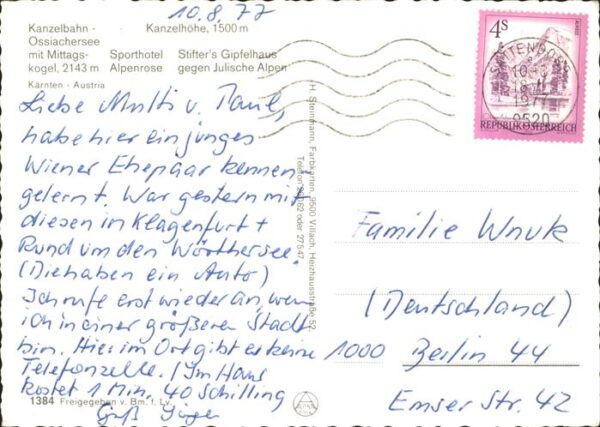 10.8.77
Kanzelbahn - Kanzelhöhe, 1500 m
Ossiachersee
mit Mittags- Sporthotel Stifter's Gipfelhaus
kogel, 2143 m Alpenrose gegen Julische Alpen
Kärnten - Austria
Liebe Mutti u. Paul,
habe hier ein junges
Wiener Ehepaar kennen-
gelernt. War gestern mit
diesen in Klagenfurt +
Rund um den Wörthersee.
(Die haben ein Auto)
Ich rufe erst wieder an, wenn
ich in einer größeren Stadt
bin. Hier im Ort gibt es keine
Telefonzelle. (Im Haus
kostet 1 Min. 40 Schilling
Gruß Jürgen
1384 Freigegeben v. Bm. f. Lv.
H. Steinmann, Farbkarten, 9500 Villach, Heizhausstraße 52
oder 27547
4S
1977
9520
REPUBLIK ÖSTERREICH
Familie Wnuk
(Deutschland)
1000 Berlin 44
Emser Str. 42